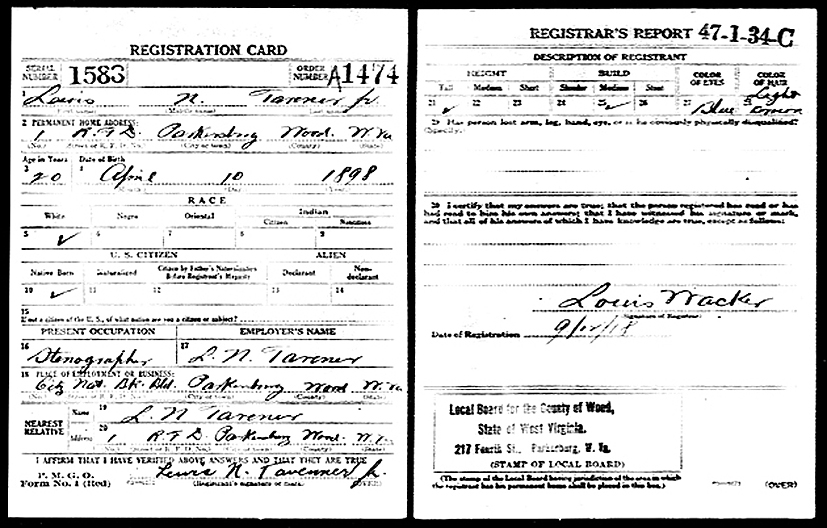 REGISTRATION CARD
SERIAL NUMBER 1583 ORDER NUMBER A1474
1 Lewis N. Tavener Jr.
2 PERMANENT HOME ADDRESS:
1 R.F.D. Parkersburg Wood W. Va
(No.) (Street or R. F. D. No.) (City or town) (County) (State)
Age in Years Date of Birth
3 20 4 April 10 1898
RACE
White Negro Oriental Indian
Citizen Noncitizen
5 ✓ 6 7 8 9
U. S. CITIZEN ALIEN
Native Born Naturalized Citizen by Father's Naturalization Before Registrant's Majority Declarant Non-declarant
10 ✓ 11 12 13 14
15
If not a citizen of the U. S., of what nation are you a citizen or subject?
PRESENT OCCUPATION EMPLOYER'S NAME
16 Stenographer 17 L. N. Tavener
18 PLACE OF EMPLOYMENT OR BUSINESS:
Nat. Bk. Bld. Parkersburg Wood W. Va
(No.) (City or town) (County) (State)
NEAREST RELATIVE
Name 19 L. N Tavener
Address 20 1 R.F.D. Parkersburg Wood W. Va.
I AFFIRM THAT I HAVE VERIFIED ABOVE ANSWERS AND THAT THEY ARE TRUE
P. M. G. O.
Form No. 1 (Red) Lewis N. Tavenner Jr.
(Registrant's signature or mark) (OVER)
REGISTRAR'S REPORT 47-1-34-C
DESCRIPTION OF REGISTRANT
HEIGHT BUILD COLOR OF EYES COLOR OF HAIR
Tall Medium Short Slender Medium Stout
21 ✓ 22 23 24 25 ✓ 26 27 Blue 28 Light Brown
29 Has person lost arm, leg, hand, eye, or is he obviously physically disqualified?
(Specify.)
30 I certify that my answers are true; that the person registered has read or has had read to him his own answers; that I have witnessed his signature or mark, and that all of his answers of which I have knowledge are true, except as follows:
Louis Wacker
(Signature of Registrar)
Date of Registration 9/12/18
Local Board for the County of Wood,
State of West Virginia.
217 Fourth St., Parkersburg, W. Va.
(STAMP OF LOCAL BOARD)
(The stamp of the Local Board having jurisdiction of the area in which
the registrant has his permanent home shall be placed in this box.)
(OVER)